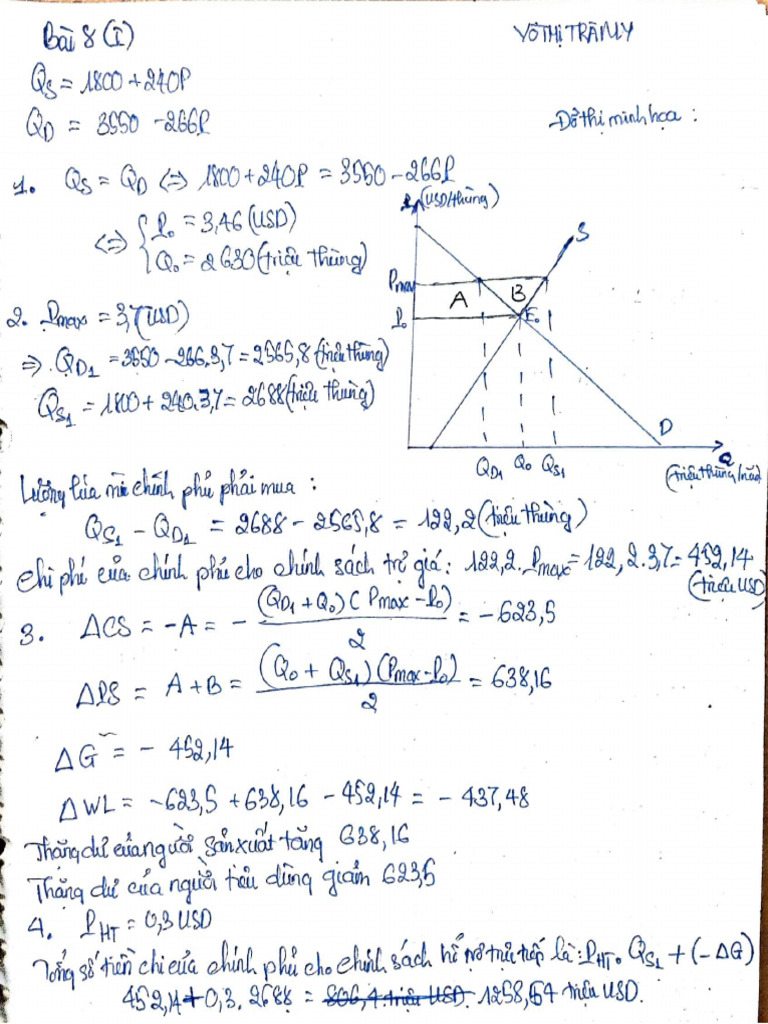 Bài 8 (I)
VÕ THỊ TRÀ MY
Qs = 1800 + 240P
QD = 3550 - 266P
Đồ thị minh họa :
1. Qs = QD <=> 1800 + 240P = 3550 - 266P
<=> { Po = 3,46 (USD)
Qo = 2630 (triệu thùng)
P (USD/thùng)
S
Pmax
A
B
Po
Eo
D
QD1 Qo Qs1
Q
(triệu thùng/năm)
2. Pmax = 3,7 (USD)
=> QD1 = 3550 - 266.3,7 = 2565,8 (triệu thùng)
Qs1 = 1800 + 240.3,7 = 2688 (triệu thùng)
Lượng lúa mì chính phủ phải mua :
Qs1 - QD1 = 2688 - 2565,8 = 122,2 (triệu thùng)
Chi phí của chính phủ cho chính sách trợ giá: 122,2. Pmax = 122,2.3,7 = 452,14
(triệu USD)
3. ΔCS = -A = - (QD1 + Qo) (Pmax - Po) / 2 = -623,5
ΔPS = A + B = (Qo + Qs1) (Pmax - Po) / 2 = 638,16
ΔG = - 452,14
ΔWL = -623,5 + 638,16 - 452,14 = - 437,48
Thặng dư của người sản xuất tăng 638,16
Thặng dư của người tiêu dùng giảm 623,5
4. PHT = 0,3 USD
Tổng số tiền chi của chính phủ cho chính sách hỗ trợ trực tiếp là: PHT . Qs1 + (-ΔG)
452,14 + 0,3. 2688 = 806,4 triệu USD. 1258,54 triệu USD.